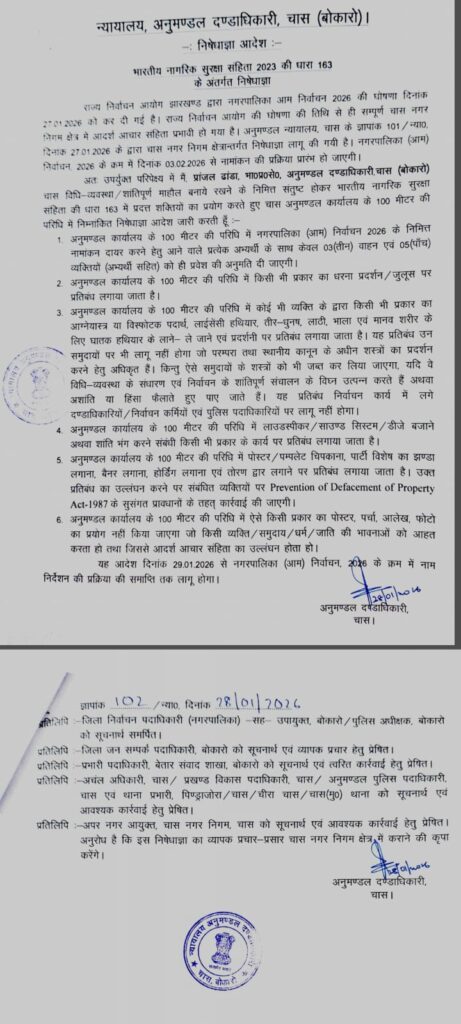 न्यायालय, अनुमण्डल दण्डाधिकारी, चास (बोकारो)।
–: निषेधाज्ञा आदेश :–
भारतीय नागरिक सुरक्षा संहिता 2023 की धारा 163
के अंतर्गत निषेधाज्ञा
राज्य निर्वाचन आयोग झारखण्ड द्वारा नगरपालिका आम निर्वाचन 2026 की घोषणा दिनांक
27.01.2026 को कर दी गई है। राज्य निर्वाचन आयोग की घोषणा की तिथि से ही सम्पूर्ण चास नगर
निगम क्षेत्र में आदर्श आचार संहिता प्रभावी हो गया है। अनुमण्डल न्यायालय, चास के ज्ञापांक 101/न्या0,
दिनांक 27.01.2026 के द्वारा चास नगर निगम क्षेत्रान्तर्गत निषेधाज्ञा लागू की गयी है। नगरपालिका (आम)
निर्वाचन, 2026 के क्रम में दिनांक 03.02.2026 से नामांकन की प्रक्रिया प्रारंभ हो जाएगी।
अतः उपर्युक्त परिपेक्ष्य में मैं, प्रांजल ढांडा, भा0प्र0से0, अनुमण्डल दण्डाधिकारी,चास (बोकारो)
चास विधि-व्यवस्था/शांतिपूर्ण माहौल बनाये रखने के निमित्त संतुष्ट होकर भारतीय नागरिक सुरक्षा
संहिता की धारा 163 में प्रदत्त शक्तियों का प्रयोग करते हुए चास अनुमण्डल कार्यालय के 100 मीटर की
परिधि में निम्नांकित निषेधाज्ञा आदेश जारी करती हूँ :–
1. अनुमण्डल कार्यालय के 100 मीटर की परिधि में नगरपालिका (आम) निर्वाचन 2026 के निमित्त
नामांकन दायर करने हेतु आने वाले प्रत्येक अभ्यर्थी के साथ केवल 03(तीन) वाहन एवं 05(पाँच)
व्यक्तियों (अभ्यर्थी सहित) को ही प्रवेश की अनुमति दी जाएगी।
2. अनुमण्डल कार्यालय के 100 मीटर की परिधि में किसी भी प्रकार का धरना प्रदर्शन/जुलूस पर
प्रतिबंध लगाया जाता है।
3. अनुमण्डल कार्यालय के 100 मीटर की परिधि में कोई भी व्यक्ति के द्वारा किसी भी प्रकार का
आग्नेयास्त्र या विस्फोटक पदार्थ, लाईसेंसी हथियार, तीर-धुनष, लाठी, भाला एवं मानव शरीर के
लिए घातक हथियार के लाने– ले जाने एवं प्रदर्शनी पर प्रतिबंध लगाया जाता है। यह प्रतिबंध उन
समुदायों पर भी लागू नहीं होगा जो परम्परा तथा स्थानीय कानून के अधीन शस्त्रों का प्रदर्शन
करने हेतु अधिकृत हैं। किन्तु ऐसे समुदायों के शस्त्रों को भी जब्त कर लिया जाएगा, यदि वे
विधि-व्यवस्था के संधारण एवं निर्वाचन के शांतिपूर्ण संचालन के विघ्न उत्पन्न करते हैं अथवा
अशांति या हिंसा फैलाते हुए पाए जाते हैं। यह प्रतिबंध निर्वाचन कार्य में लगे
दण्डाधिकारियों/निर्वाचन कर्मियों एवं पुलिस पदाधिकारियों पर लागू नहीं होगा।
4. अनुमण्डल कार्यालय के 100 मीटर की परिधि में लाउडस्पीकर/साउण्ड सिस्टम/डीजे बजाने
अथवा शांति भंग करने संबंधी किसी भी प्रकार के कार्य पर प्रतिबंध लगाया जाता है।
5. अनुमण्डल कार्यालय के 100 मीटर की परिधि में पोस्टर/पम्पलेट चिपकाना, पार्टी विशेष का झण्डा
लगाना, बैनर लगाना, होर्डिंग लगाना एवं तोरण द्वार लगाने पर प्रतिबंध लगाया जाता है। उक्त
प्रतिबंध का उल्लंघन करने पर संबंधित व्यक्तियों पर Prevention of Defacement of Property
Act-1987 के सुसंगत प्रावधानों के तहत् कार्रवाई की जाएगी।
6. अनुमण्डल कार्यालय के 100 मीटर की परिधि में ऐसे किसी प्रकार का पोस्टर, पर्चा, आलेख, फोटो
का प्रयोग नहीं किया जाएगा जो किसी व्यक्ति/समुदाय/धर्म/जाति की भावनाओं को आहत
करता हो तथा जिससे आदर्श आचार संहिता का उल्लंघन होता हो।
यह आदेश दिनांक 29.01.2026 से नगरपालिका (आम) निर्वाचन, 2026 के क्रम में नाम
निर्देशन की प्रक्रिया की समाप्ति तक लागू होगा।
28/01/2026
अनुमण्डल दण्डाधिकारी,
चास।
ज्ञापांक 102 /न्या0, दिनांक 28/01/2026
प्रतिलिपि :–जिला निर्वाचन पदाधिकारी (नगरपालिका) –सह– उपायुक्त, बोकारो/पुलिस अधीक्षक, बोकारो
को सूचनार्थ समर्पित।
प्रतिलिपि :–जिला जन सम्पर्क पदाधिकारी, बोकारो को सूचनार्थ एवं व्यापक प्रचार हेतु प्रेषित।
प्रतिलिपि :–प्रभारी पदाधिकारी, बेतार संवाद शाखा, बोकारो को सूचनार्थ एवं त्वरित कार्रवाई हेतु प्रेषित।
प्रतिलिपि :–अचंल अधिकारी, चास/ प्रखण्ड विकास पदाधिकारी, चास/ अनुमण्डल पुलिस पदाधिकारी,
चास एवं थाना प्रभारी, पिण्ड्राजोरा/चास/चीरा चास/चास(मु0) थाना को सूचनार्थ एवं
आवश्यक कार्रवाई हेतु प्रेषित।
प्रतिलिपि :–अपर नगर आयुक्त, चास नगर निगम, चास को सूचनार्थ एवं आवश्यक कार्रवाई हेतु प्रेषित।
अनुरोध है कि इस निषेधाज्ञा का व्यापक प्रचार-प्रसार चास नगर निगम क्षेत्र में कराने की कृपा
करेंगे।
28/01/2026
अनुमण्डल दण्डाधिकारी,
चास।
न्यायालय अनुमण्डल दण्डाधिकारी
चास, बोकारो